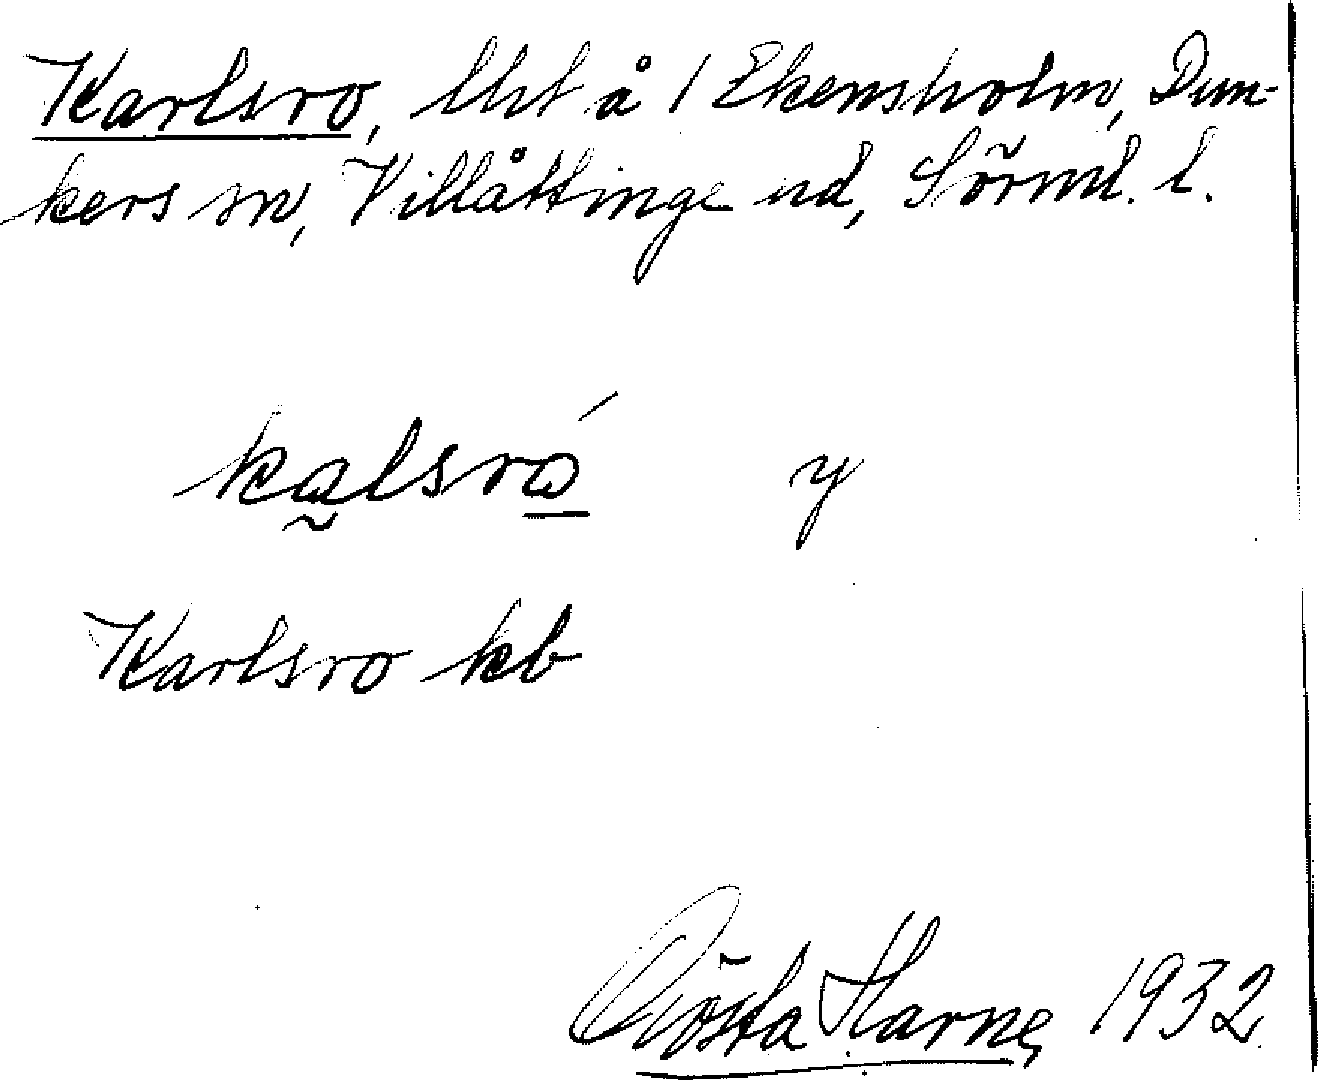 Karlsro, lht å 1 Ekensholm, Dun-
kers sn, Villåttinge hd, Sörml. l.
kalsró y
Karlsro kb
Gösta Harne, 1932